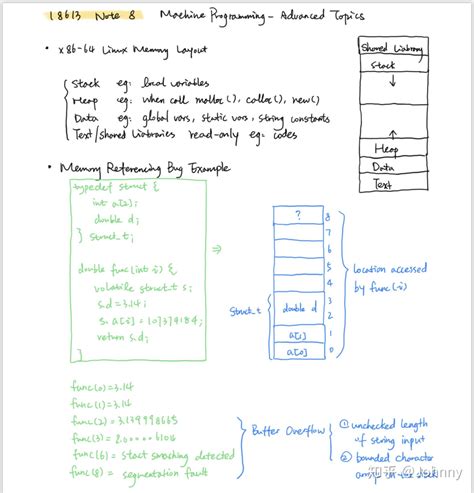 18613 Note 8 Machine Programming - Advanced Topics
• x86-64 Linux Memory Layout
Stack eg: local variables
Heap eg: when call malloc(), calloc(), new()
Data eg: global vars, static vars, string constants
Text/shared Libraries read-only eg: codes
Shared Library
Stack
↓
↑
Heap
Data
Text
• Memory Referencing Bug Example
typedef struct {
int a[2];
double d;
} struct_t;
double func(int i) {
volatile struct_t s;
s.d = 3.14;
s.a[i] = 1073741824;
return s.d;
}
⇒
? 8
7
6
5
4
double d 3
2
a[1] 1
a[0] 0
Struct_t
Location accessed
by func(i)
func(0) = 3.14
func(1) = 3.14
func(2) = 3.1399986665
func(3) = 2.000006104
func(6) = stack smashing detected
func(8) = segmentation fault
Buffer Overflow
① unchecked length
of string input
② bounded character
array on the stack
知乎 @Johnny